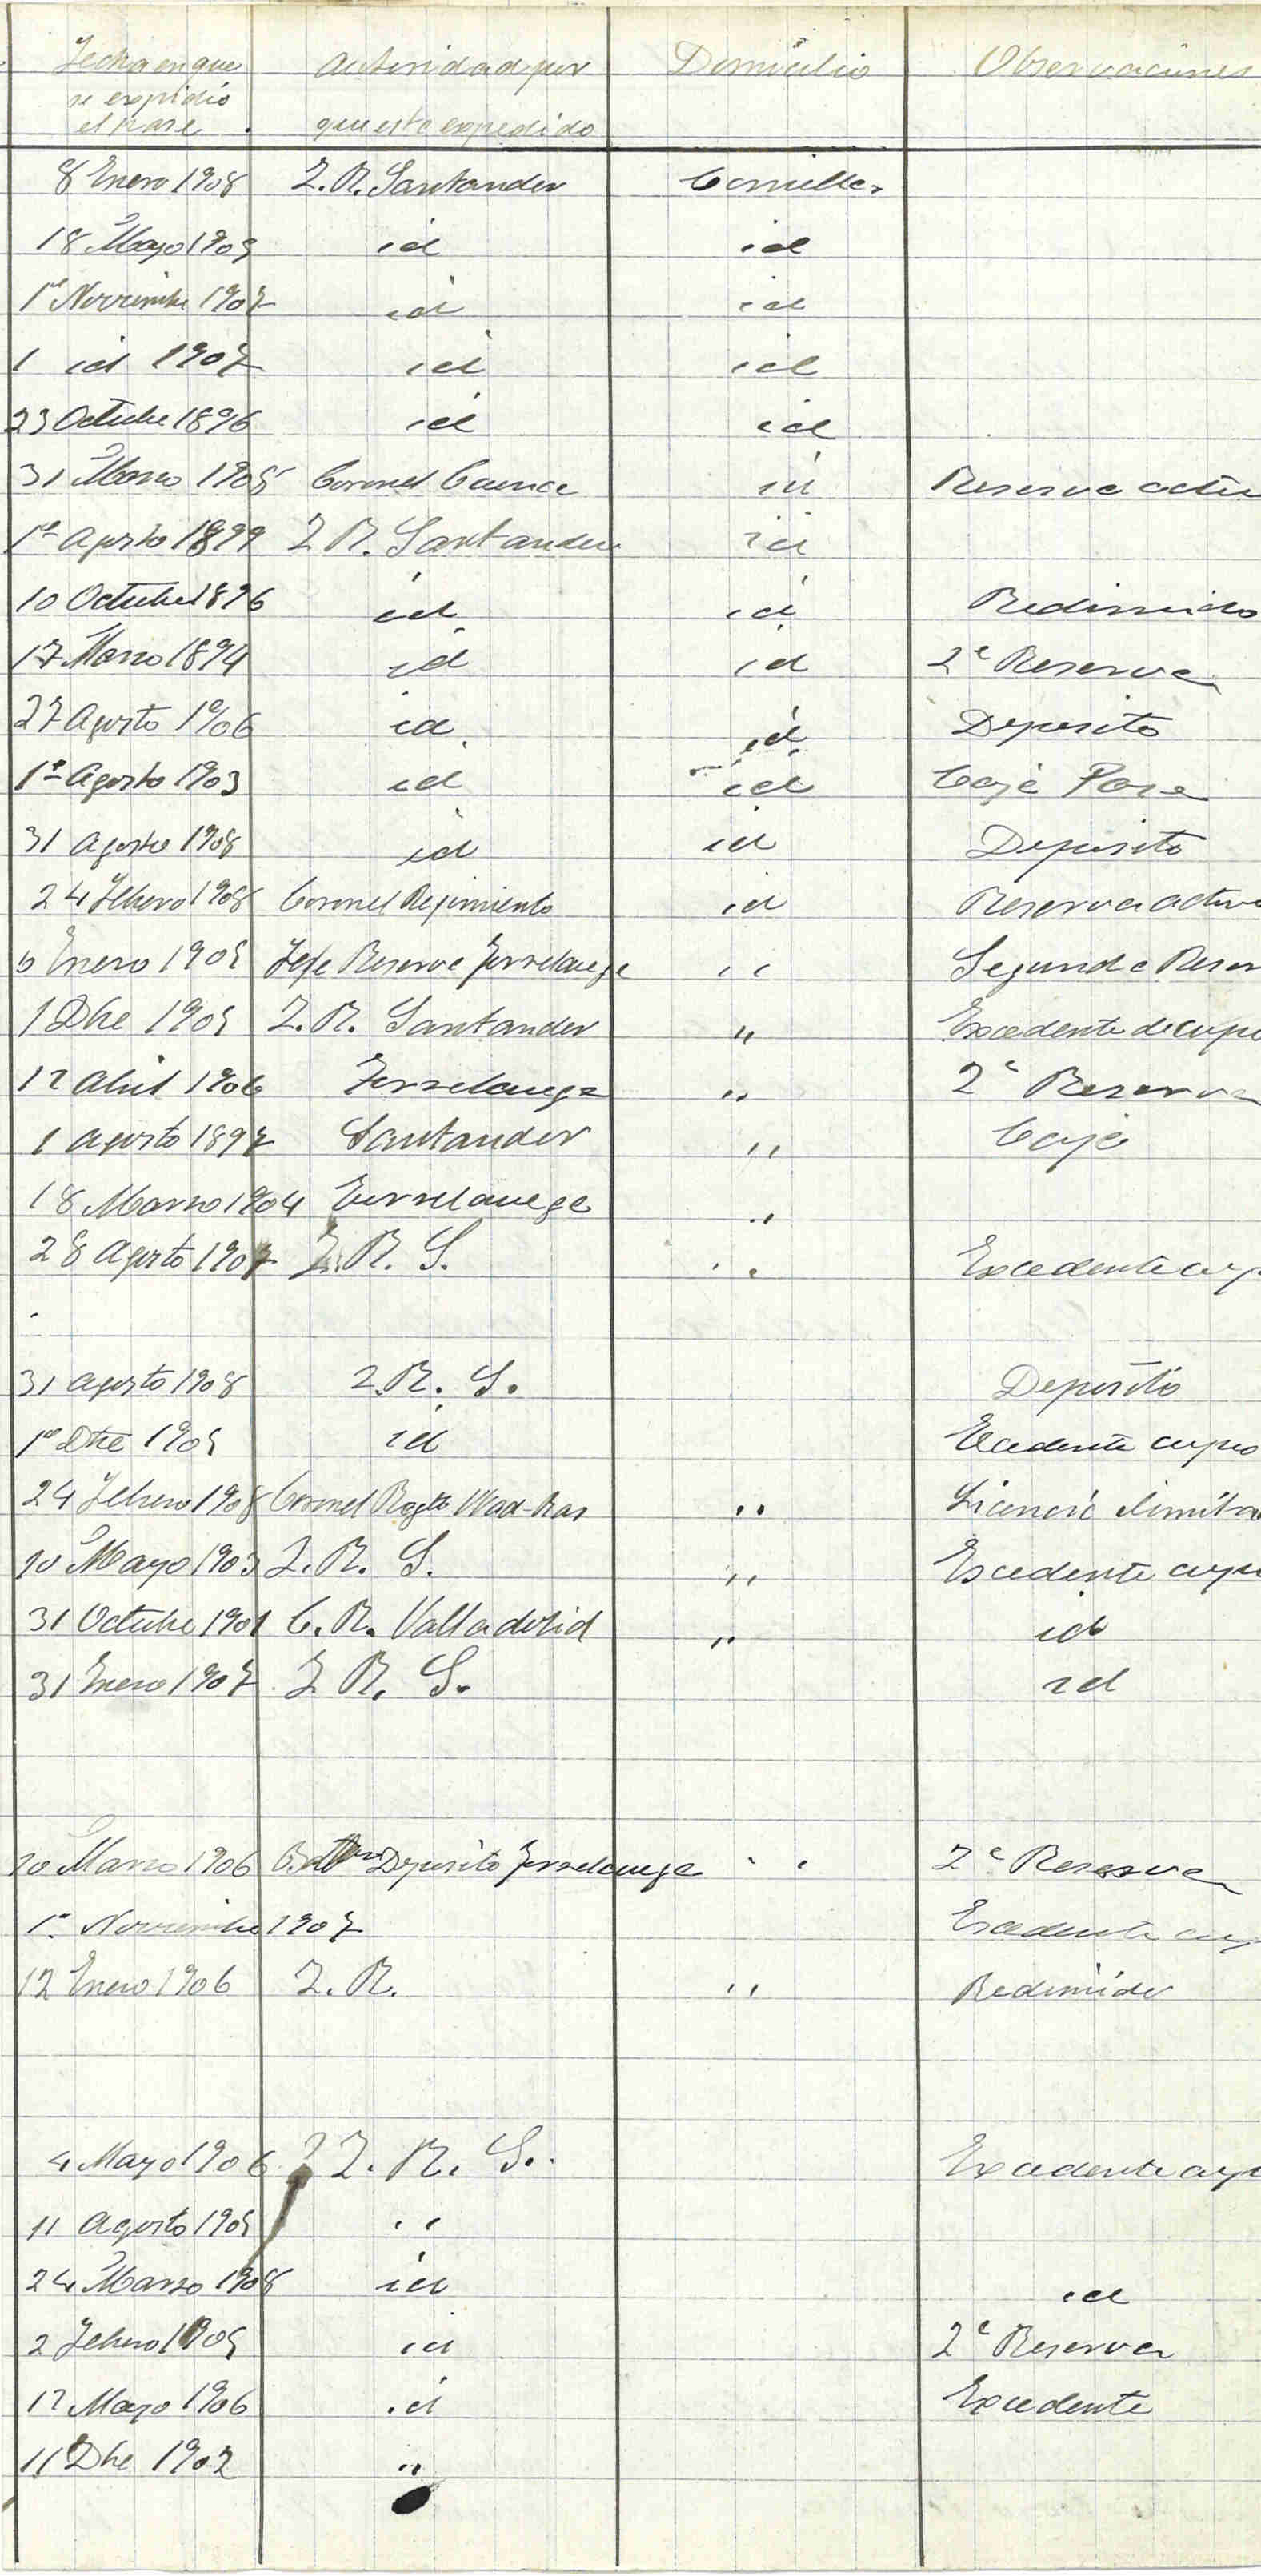 Fecha en que se expidió el pase Autoridad por que esta expedido Domicilio Observaciones
8 Enero 1908 Z. R. Santander Comillas
18 Mayo 1905 id id
1º Noviembre 1907 id id
1 id 1907 id id
23 Octubre 1896 id id
31 Marzo 1908 Coronel Cuenca id Reserva activ
1º Agosto 1899 Z R. Santander id
10 Octubre 1896 id id Redimido
17 Marzo 1894 id id 2ª Reserva
27 Agosto 1906 id id Deposito
1º Agosto 1903 id id Caja Pase
31 Agosto 1908 id id Deposito
24 Febrero 1908 Coronel Regimiento id Reserva activa
6 Enero 1905 Jefe Reserva Torrelavega " Segunda Reser
1 Dbre 1905 Z. R. Santander " Excedente de cupo
12 Abril 1906 Torrelavega " 2ª Reserva
1 Agosto 1897 Santander " Caja
18 Marzo 1904 Torrelavega "
28 Agosto 1907 Z. R. S. " Excedente cup
31 Agosto 1908 Z. R. S. Deposito
1º Dbre 1905 id Excedente cupo
24 Febrero 1908 Coronel Regto Wad-Ras " Licencia ilimita
10 Mayo 1903 Z. R. S. " Excedente cupo
31 Octubre 1901 C. R. Valladolid " id
31 Enero 1907 Z R. S. id
20 Marzo 1906 Deposito Torrelavega " 2ª Reserva
1º Noviembre 1907 Excedente cup
12 Enero 1906 Z. R. " Redimido
4 Mayo 1906 Z. R. S. Excedente cup
11 Agosto 1905 "
24 Marzo 1908 id id
2 Febrero 1905 id 2ª Reserva
12 Mayo 1906 id Excedente
11 Dbre 1902 "